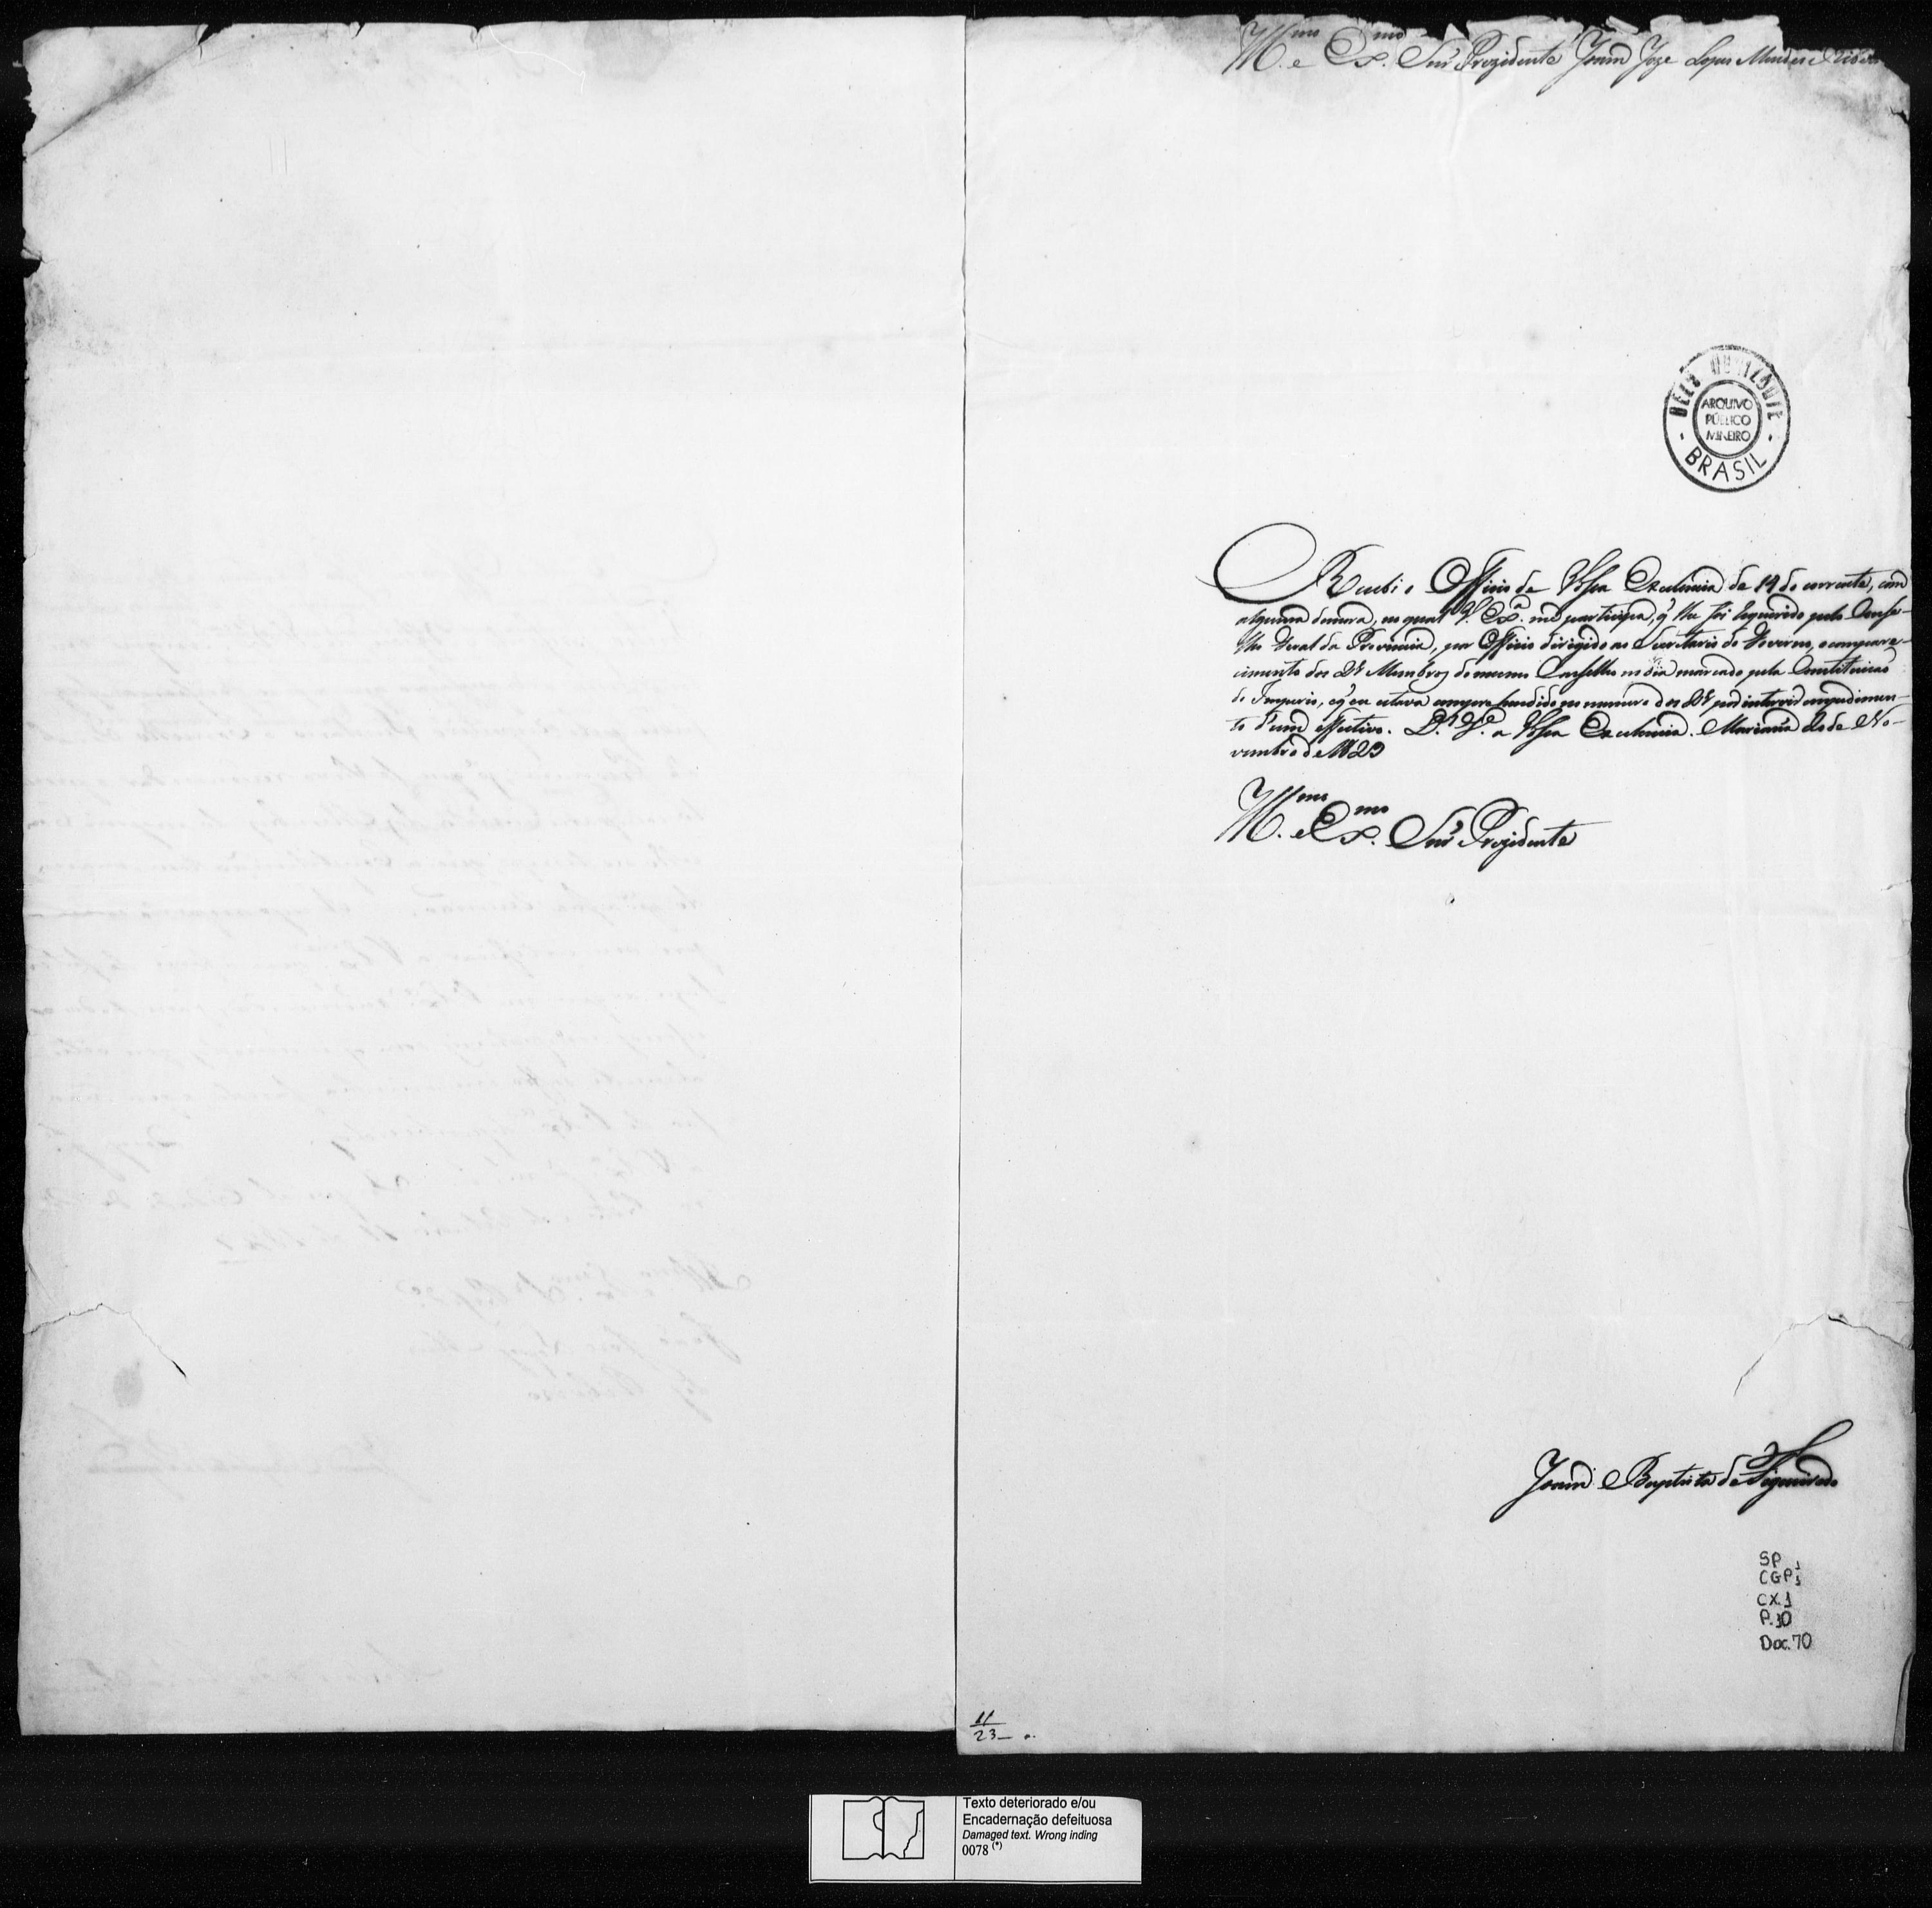 Ill.mo e Ex.mo Snr Prezidente Joam Joze Lopes Mendes Ribeiro
BELO HORIZONTE
ARQUIVO
PÚBLICO
MINEIRO
BRASIL
Recebi o Officio de Vossa Excelencia de 14 do corrente, com
alguma demora, no qual V. Ex.a me participa, q̃ lhe foi requerido pelo Conse-
lho Geral da Provincia, por Officio dirigido ao Secretario do Governo, o compare-
cimento dos Membros do mesmo Conselho no dia marcado pela Constituicão
do Imperio, e q̃ eu estava comprehendido no numero dos por intervir impedimen-
to d'um effectivo. D.s G.e a Vossa Excelencia. Marianna 20 de No-
vembro de 1829
Ill.mo e Ex.mo Snr Prezidente
Joam Baptista de Figueiredo
SP
CGP1
CX.1
P.10
Doc.70
11
23
Texto deteriorado e/ou
Encadernação defeituosa
Damaged text. Wrong inding
0078 (*)